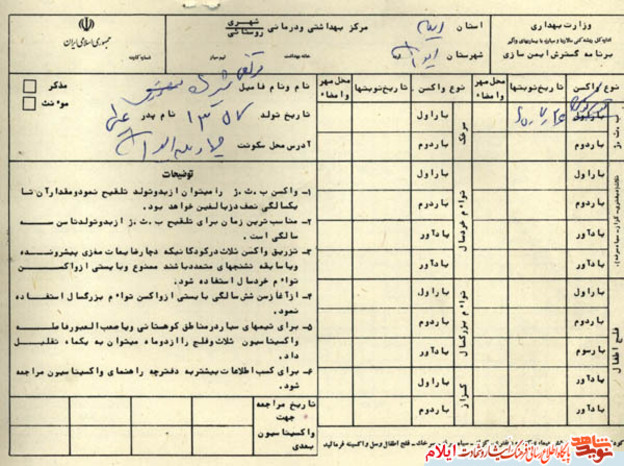 وزارت بهداری
اداره کل ریشه کنی مالاریا و مبارزه با بیماریهای واگیر
برنامه گسترش ایمن سازی
استان ایلام
شهرستان
مرکز بهداشتی ودرمانی شهری روستائی
خانه بهداشت
تیم سیار
جمهوری اسلامی ایران
شماره کارت
نام ونام فامیل
مذکر
مونث
تاریخ تولد ۱۳۵۷ نام پدر علی
آدرس محل سکونت
توضیحات
۱- واکسن ب.ث.ژ را میتوان از بدوتولد تلقیح نمود ومقدار آن تا
یکسالگی نصف دز بالغین خواهد بود.
۲- مناسب ترین زمان برای تلقیح ب.ث.ژ از بدوتولد تا سن سه
سالگی است.
۳- تزریق واکسن ثلاث در کودکانیکه دچار ضایعات مغزی پیشرونده
ویا سابقه تشنجهای متعدد باشند ممنوع وبایستی از واکسن
توام خردسال استفاده شود.
۴- از آغاز سن شش سالگی بایستی از واکسن توام بزرگسال استفاده
نمود.
۵- برای تیمهای سیار در مناطق کوهستانی ویا صعب العبور فاصله
واکسیناسیون ثلاث وفلج را از دو ماه میتوان به یکماه تقلیل
داد.
۶- برای کسب اطلاعات بیشتر به دفترچه راهنمای واکسیناسیون مراجعه
شود.
تاریخ مراجعه
جهت
واکسیناسیون
بعدی
نوع واکسن تاریخ نوبتها محل مهر وامضاء نوع واکسن تاریخ نوبتها محل مهر وامضاء
ب.ث.ژ
بار اول
بار دوم
بار اول
بار دوم
یادآور
یادآور
فلج اطفال
بار اول
بار دوم
بار سوم
یادآور
یادآور
سرخک
بار اول
بار دوم
توام خردسال
بار اول
بار دوم
یادآور
یادآور
توام بزرگسال
بار اول
بار دوم
یادآور
کزاز
بار اول
بار دوم
فلج اطفال وسل واکسینه فرمائید
نوید شاهد
پایگاه اطلاع رسانی فرهنگ ایثار و شهادت ایلام